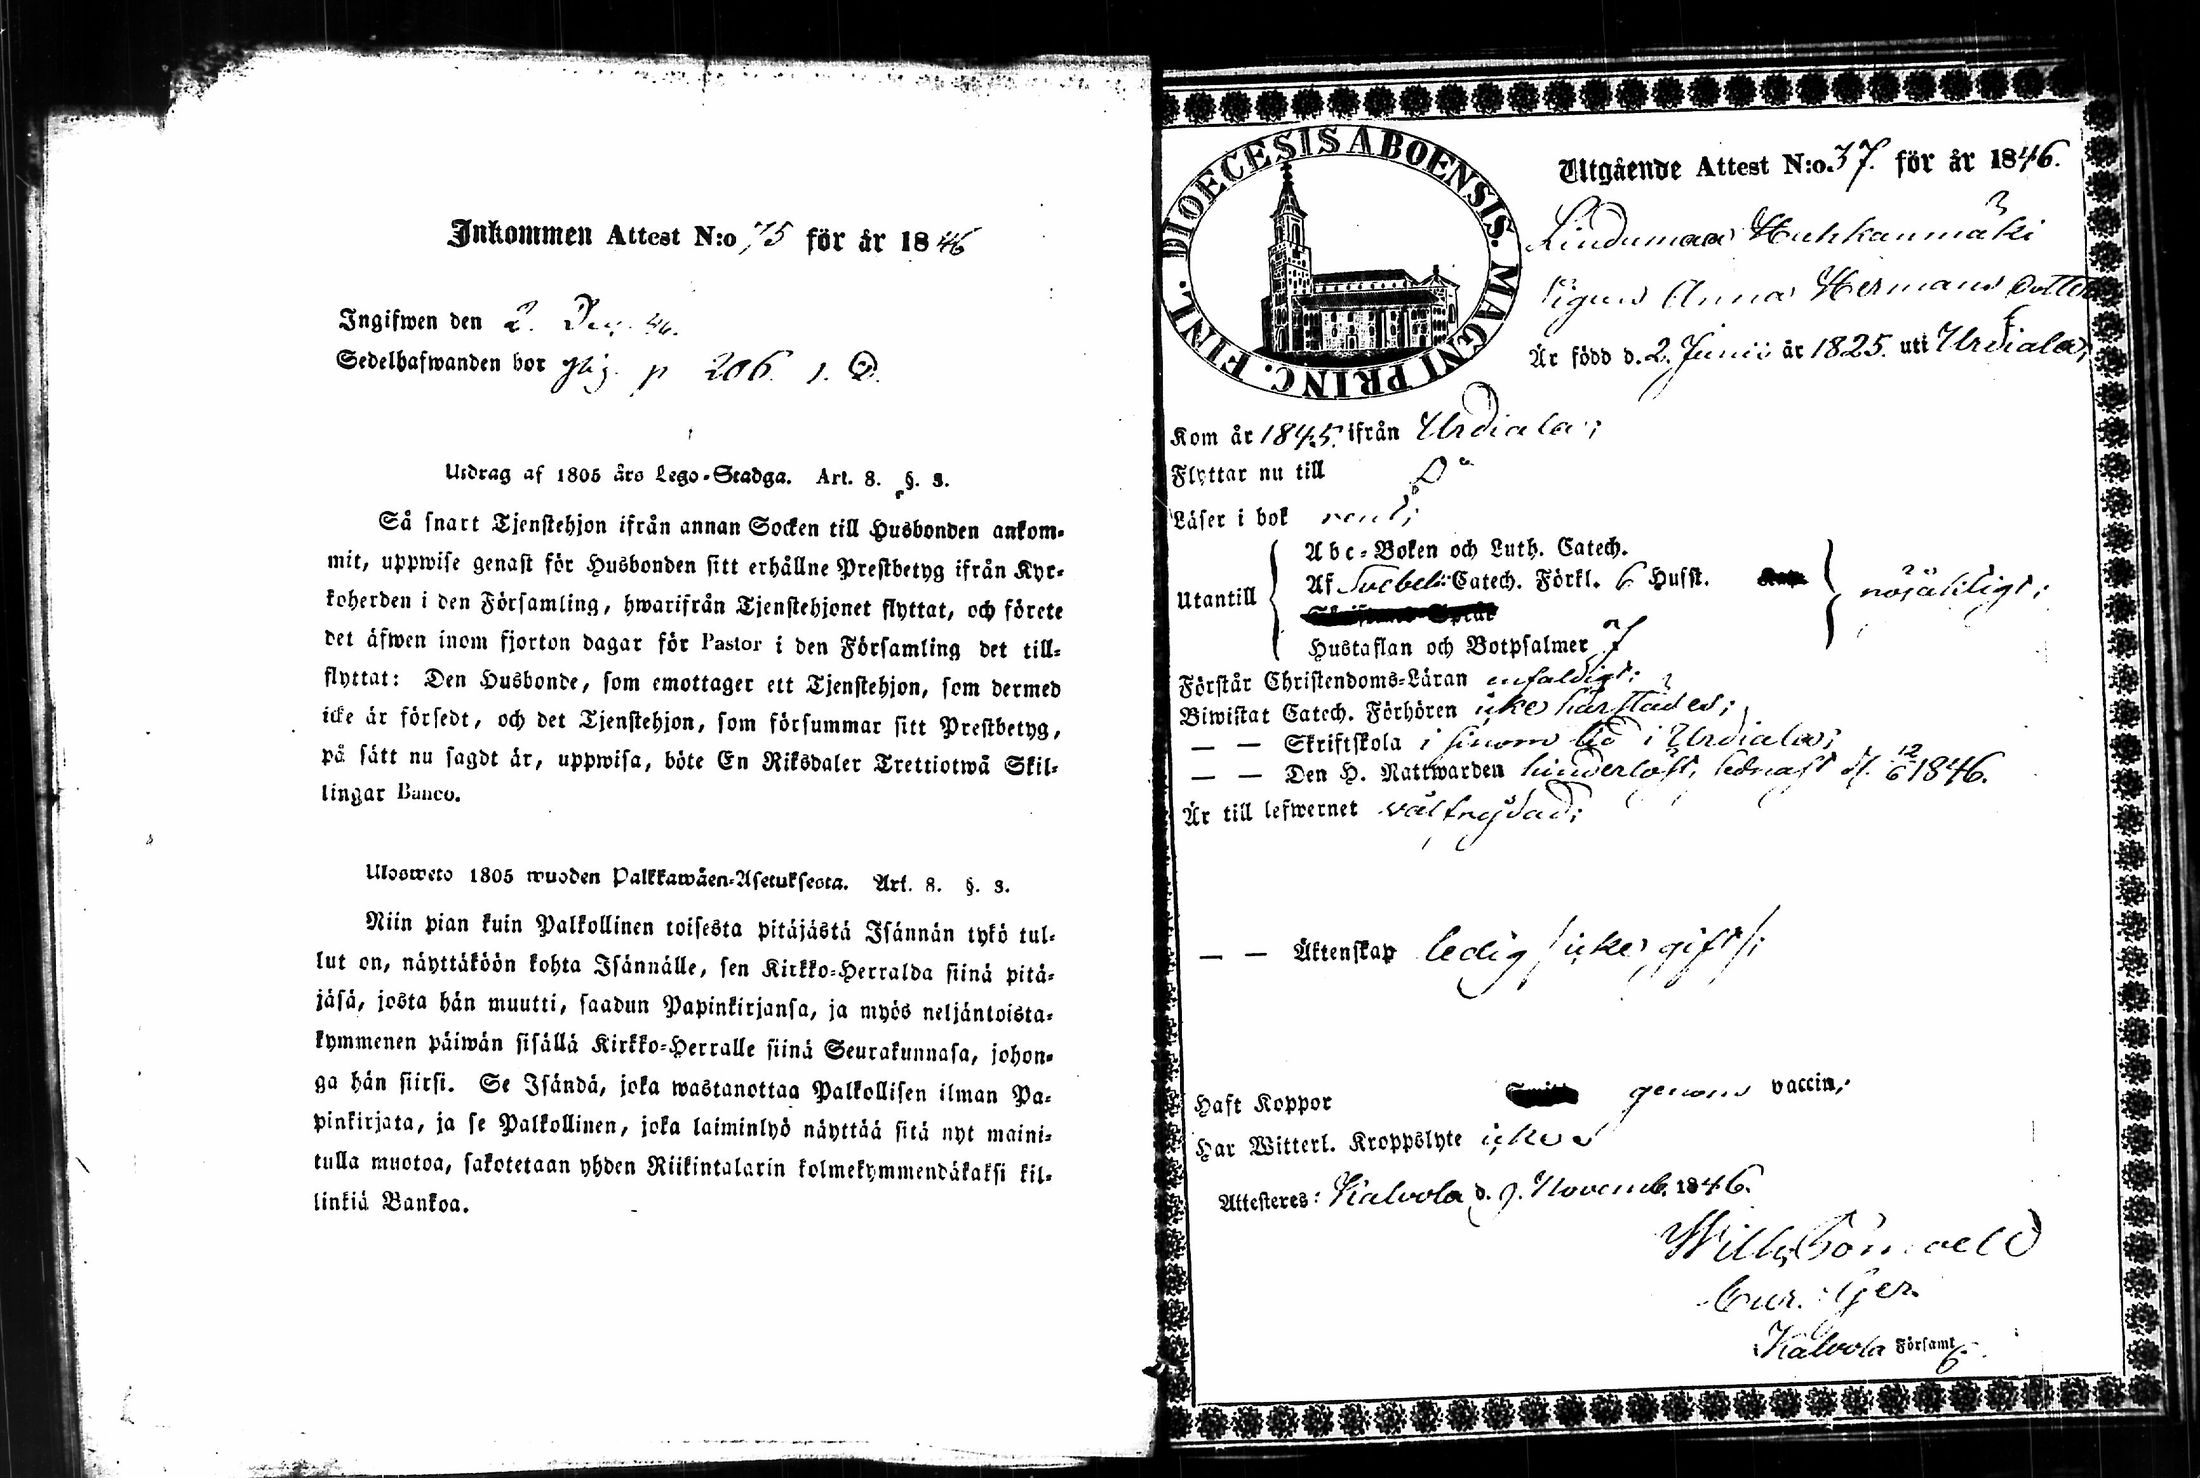 Inkommen Attest N:o 75 för år 1846
Ingifwen den 2. Dec. 46.
Sedelhafwanden bor p 206.
Utdrag af 1805 års Lego-Stadga. Art. 8. §. 3.
Så snart Tjenstehjon ifrån annan Socken till Husbonden ankom-
mit, uppwise genast för Husbonden sitt erhållne Prestbetyg ifrån Kyr-
koherden i den Församling, hwarifrån Tjenstehjonet flyttat, och förete
det äfwen inom fjorton dagar för Pastor i den Församling det till-
flyttat: Den Husbonde, som emottager ett Tjenstehjon, som dermed
icke är försedt, och det Tjenstehjon, som försummar sitt Prestbetyg,
på sätt nu sagdt är, uppwisa, böte En Riksdaler Trettiotwå Skil-
lingar Banco.
Ulosweto 1805 wuoden Palkkawäen-Asetuksesta. Art. 8. §. 3.
Niin pian kuin Palkollinen toisesta pitäjästä Isännän tykö tul-
lut on, näyttäköön kohta Isännälle, sen Kirkko-Herralda siinä pitä-
jäsä, josta hän muutti, saadun Papinkirjansa, ja myös neljäntoista-
kymmenen päiwän sisällä Kirkko-Herralle siinä Seurakunnasa, johon-
ga hän siirsi. Se Isändä, joka wastanottaa Palkollisen ilman Pa-
pinkirjata, ja se Palkollinen, joka laiminlyö näyttää sitä nyt maini-
tulla muotoa, sakotetaan yhden Riikintalarin kolmekymmendäkaksi kil-
linkiä Bankoa.
DIOECESIS ABOENSIS. MAGNI PRINC. FINL.
Utgående Attest N:o. 37. för år 1846.
Huhkanmäki
Pigan Anna Hermans Dotter
Är född d. 2. Junii år 1825. uti Urdiala;
Kom år 1845. ifrån Urdiala;
Flyttar nu till D:o
Läser i bok rent;
Utantill
Abc-Boken och Luth. Catech.
Af Svebelii Catech. Förkl. 6 Hufst.
Hustaflan och Botpsalmer 7
nöjaktigt;
Förstår Christendoms-Läran enfaldigt;
Biwistat Catech. Förhören icke härstädes;
— — Skriftskola i sinom tid i Urdiala;
— — Den H. Nattwarden hinderlöst, sednast d. 12/6 1846.
Är till lefwernet välfrejdad;
— — Äktenskap ledig /icke gift/;
Haft Koppor genom vaccin;
Har Witterl. Kroppslyte icke
Attesteres: Kalvola d. 9. Novemb. 1846.
Kalvola Församl.